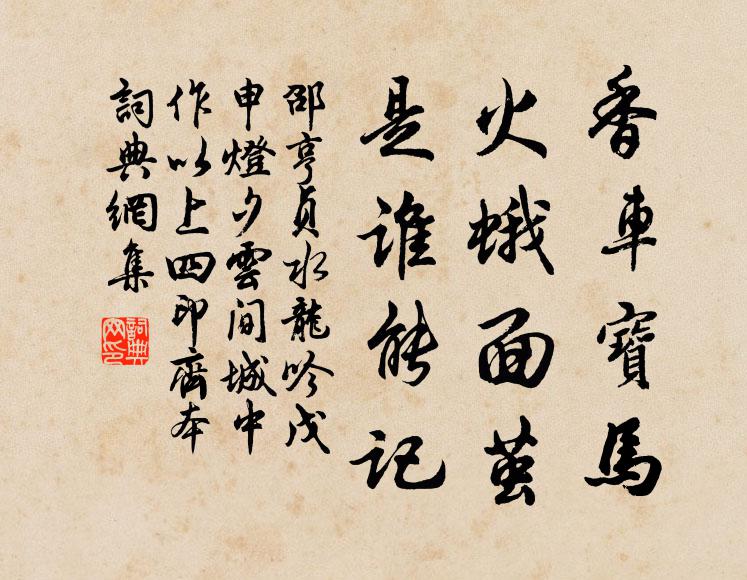 香車寶馬
火蛾面繭
是誰能記
邵亨貞水龍吟戊
申燈夕雲間城中
作以上四印齋本
詞典網集
詞典網印